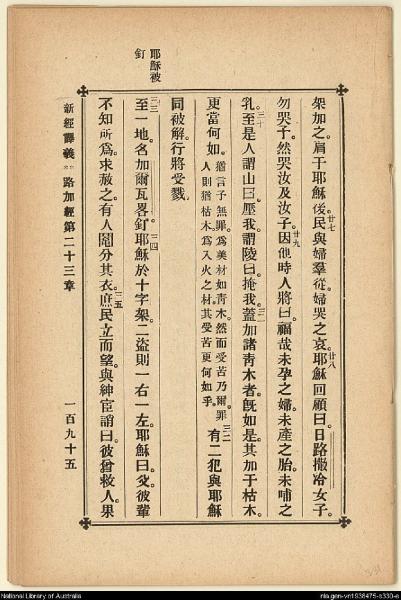 架加之肩于耶穌後。廿七民與婦羣從。婦哭之哀。廿八耶穌回顧曰。日路撒冷女子。
勿哭予。然哭汝及汝子。廿九因他時人將曰。福哉未孕之婦。未產之胎。未哺之
乳。三十至是人謂山曰。壓我。謂陵曰。掩我。三一蓋加諸靑木者旣如是。其加于枯木。
更當何如。猶言予無罪。爲美材如靑木。然而受苦乃爾。罪
人則猶枯木。爲入火之材。其受苦更何如乎。三二有二犯與耶穌
同被解。行將受戮。
耶穌被
釘
三三至一地。名加爾瓦畧。釘耶穌於十字架。二盜則一右一左。三四耶穌曰。父。彼輩
不知所爲。求赦之。有人鬮分其衣。三五庶民立而望。與紳宦誚曰。彼曾救人。果
新經譯義 路加經第二十三章 一百九十五
National Library of Australia
nla.gen-vn1938475-s330-e